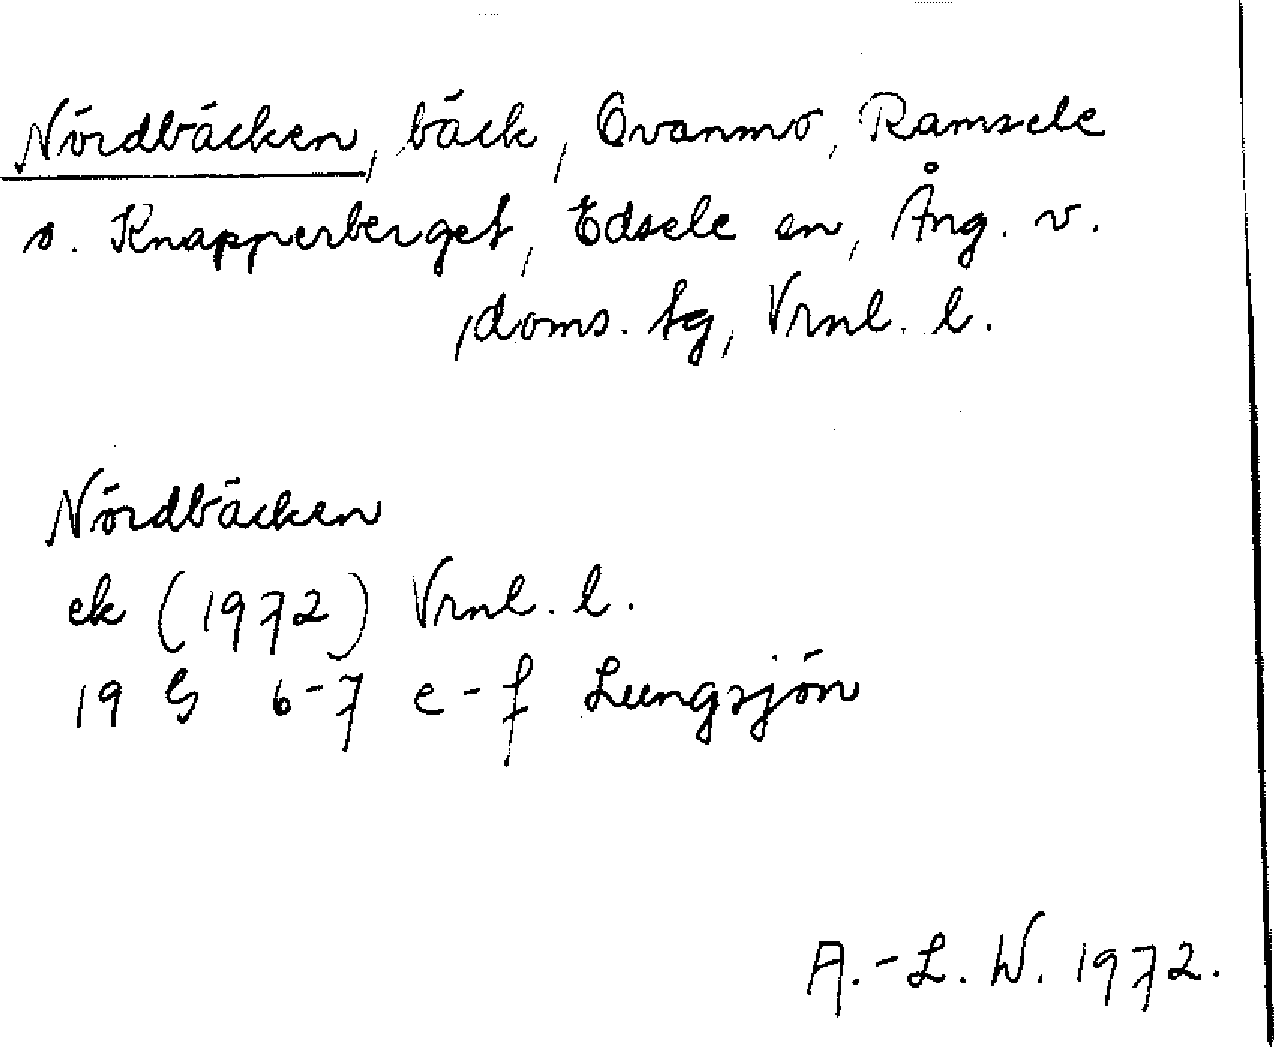 Nördbäcken, bäck, Ovanmo, Ramsele
s. Knapperberget, Edsele sn, Ång. v.
doms. tg, Vrnl. l.
Nördbäcken
ek (1972) Vrnl. l.
19 G 6-7 e-f Lungsjön
A.-L. W. 1972.